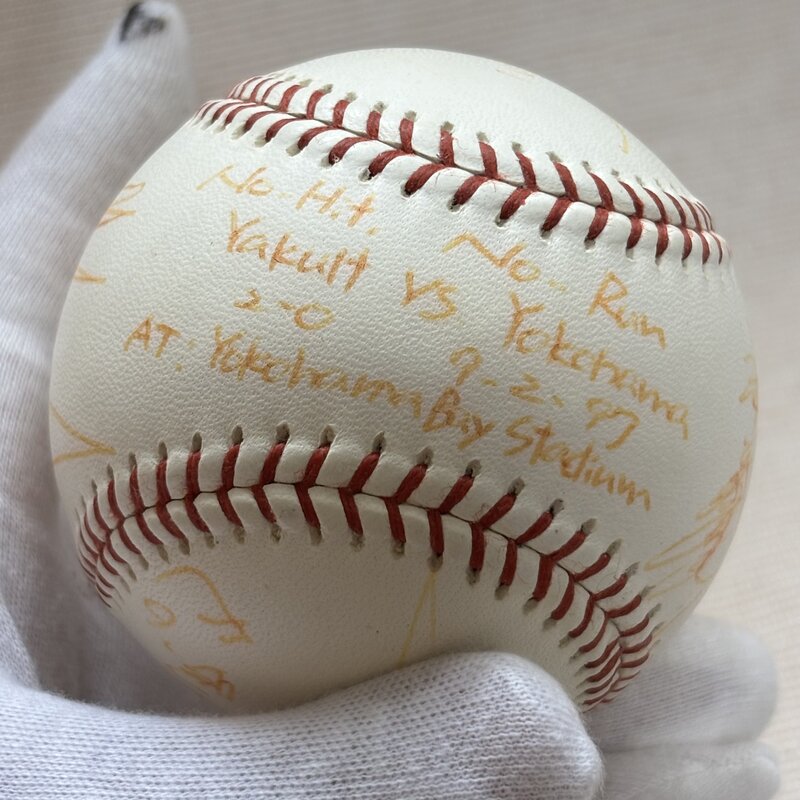 No-Hit. No-Run
Yakult vs Yokohama
2-0 9-2-97
AT: Yokohama Bay Stadium